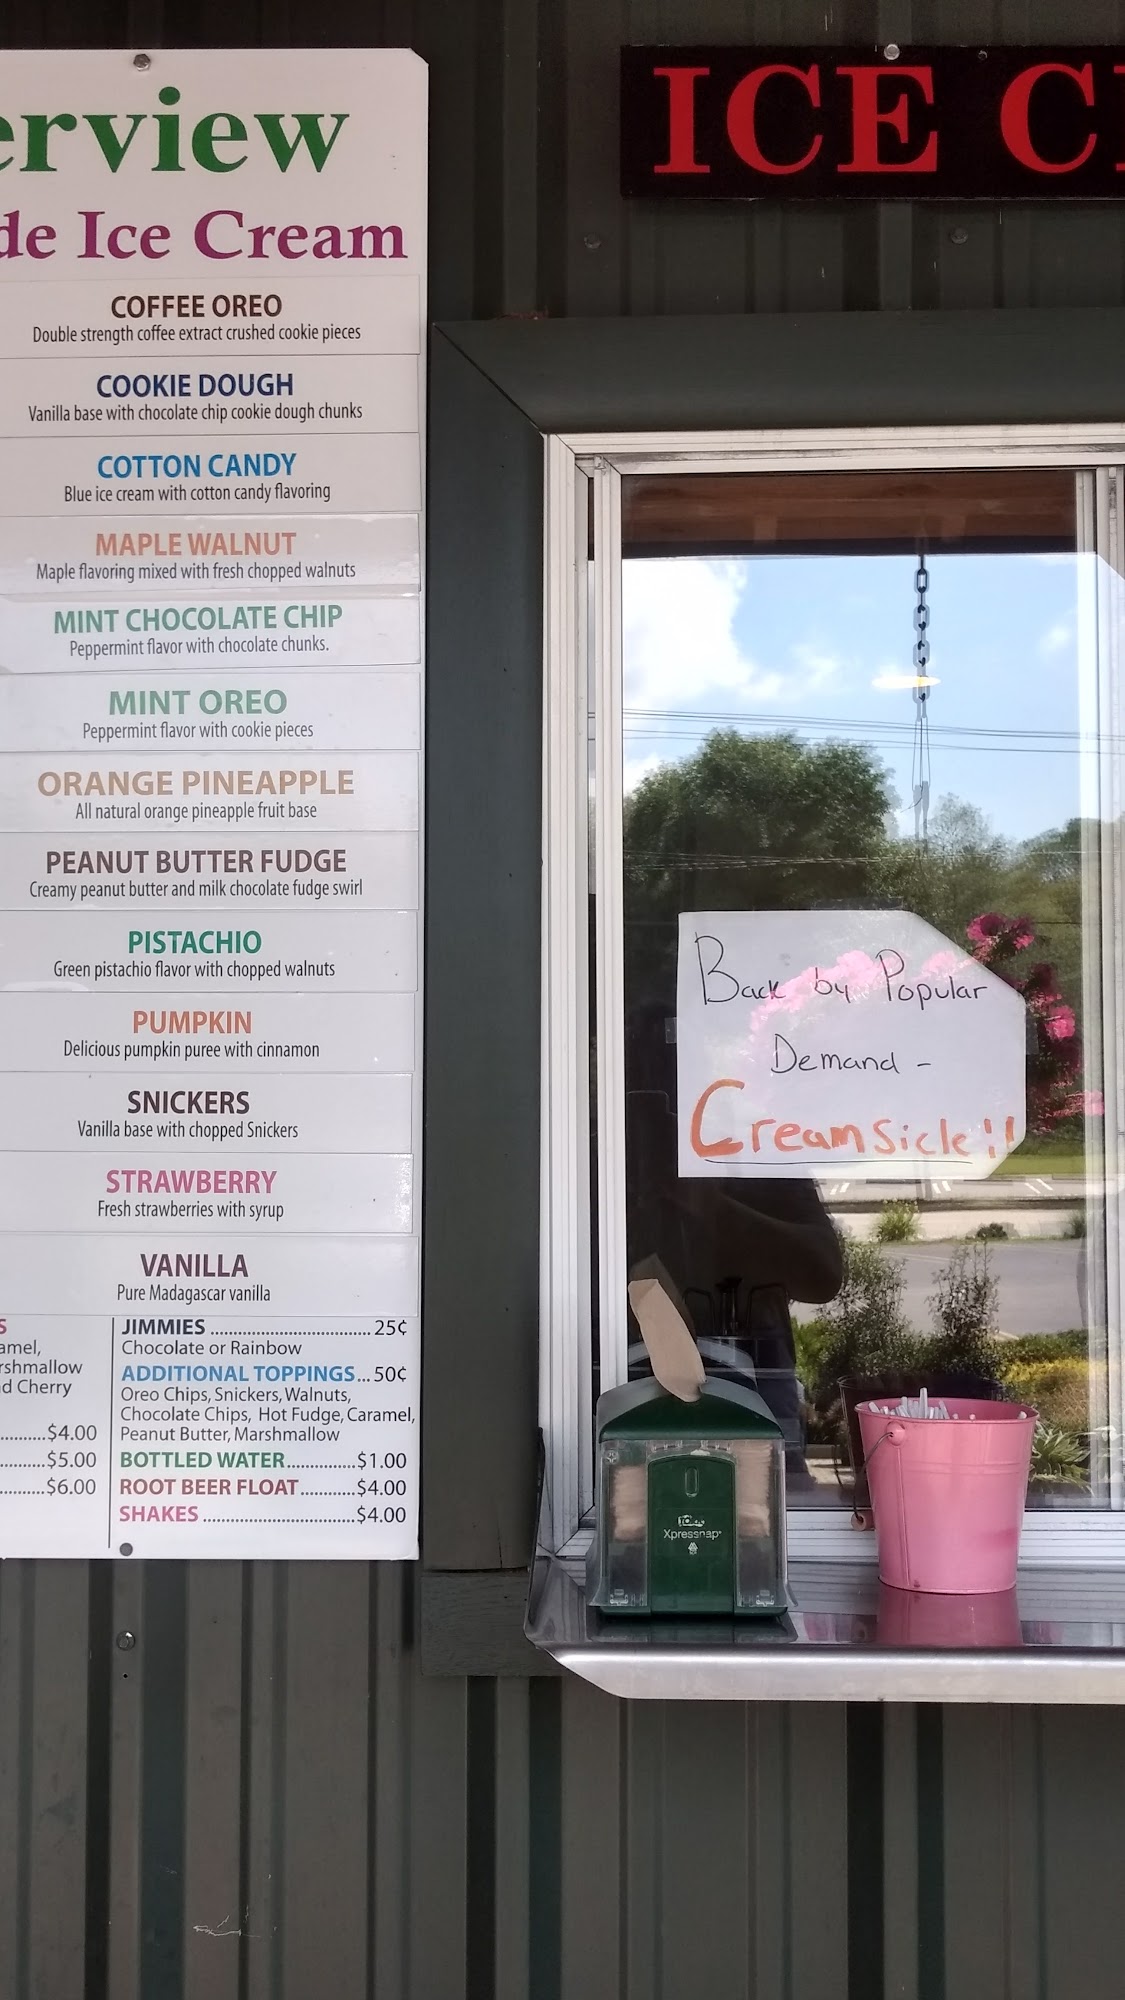 erview
de Ice Cream
COFFEE OREO
Double strength coffee extract crushed cookie pieces
COOKIE DOUGH
Vanilla base with chocolate chip cookie dough chunks
COTTON CANDY
Blue ice cream with cotton candy flavoring
MAPLE WALNUT
Maple flavoring mixed with fresh chopped walnuts
MINT CHOCOLATE CHIP
Peppermint flavor with chocolate chunks.
MINT OREO
Peppermint flavor with cookie pieces
ORANGE PINEAPPLE
All natural orange pineapple fruit base
PEANUT BUTTER FUDGE
Creamy peanut butter and milk chocolate fudge swirl
PISTACHIO
Green pistachio flavor with chopped walnuts
PUMPKIN
Delicious pumpkin puree with cinnamon
SNICKERS
Vanilla base with chopped Snickers
STRAWBERRY
Fresh strawberries with syrup
VANILLA
Pure Madagascar vanilla
S
amel,
rshmallow
d Cherry
..........$4.00
..........$5.00
..........$6.00
JIMMIES .................................. 25¢
Chocolate or Rainbow
ADDITIONAL TOPPINGS... 50¢
Oreo Chips, Snickers, Walnuts,
Chocolate Chips, Hot Fudge, Caramel,
Peanut Butter, Marshmallow
BOTTLED WATER...............$1.00
ROOT BEER FLOAT............$4.00
SHAKES .................................$4.00
ICE C
Back by Popular
Demand -
Creamsicle!!
Xpressnap